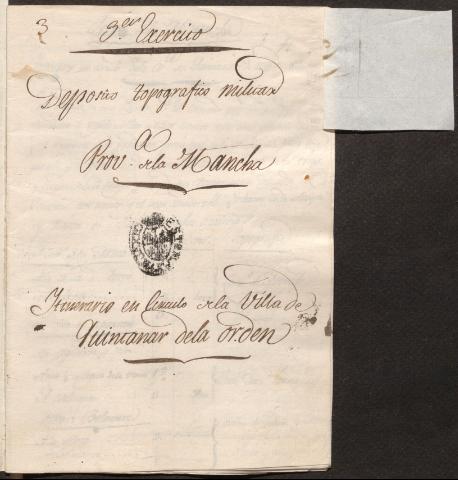 3
3.er Exercito
Deposito topografico militar
Prov.a de la Mancha
Itinerario en Circulo de la Villa de
Quintanar dela orden